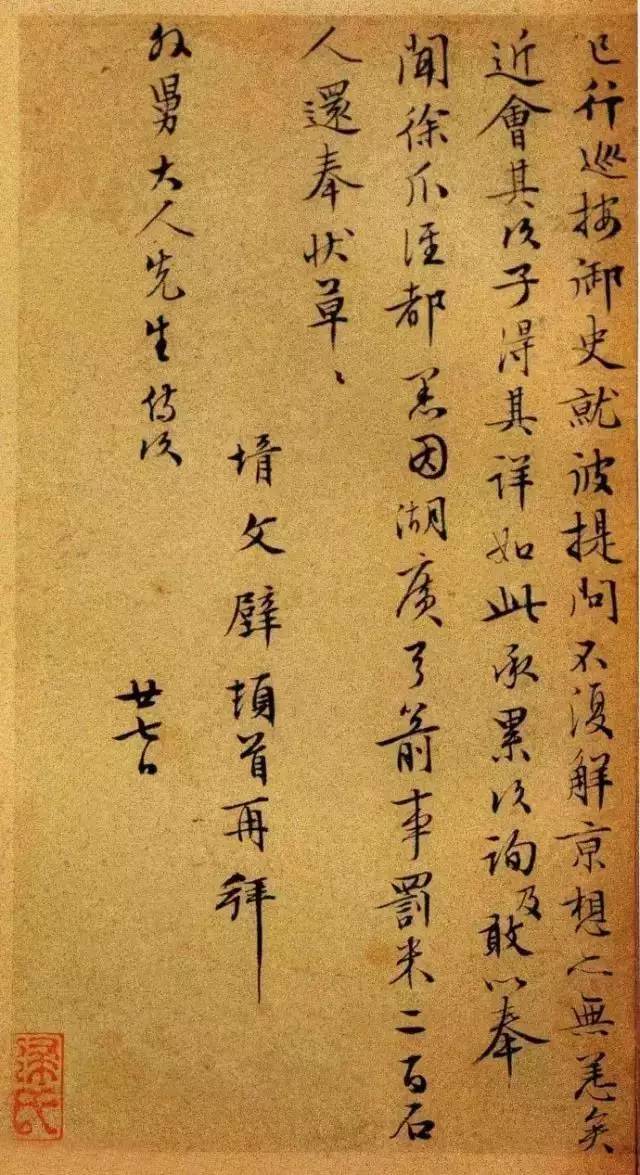 已行巡按御史就彼提问不復解京想亦無恙矣
近會其次子得其详如此承累次詢及敢以奉
聞徐爪涇都憲因湖廣弓箭事罰米二百石
人還奉狀草〻
壻文壁頓首再拜
外舅大人先生侍次
廿七日